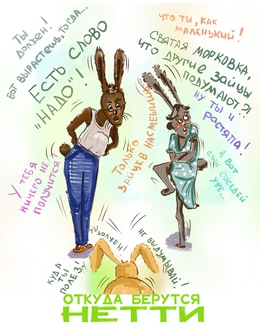 ТЫ
ДОЛЖЕН!
ВОТ ВЫРАСТЕШЬ, ТОГДА...
ЧТО ТЫ, КАК
МАЛЕНЬКИЙ!
ЕСТЬ СЛОВО
"НАДО"!
СВЯТАЯ МОРКОВКА,
ЧТО ДРУГИЕ ЗАЙЦЫ
ПОДУМАЮТ?!
НУ ТЫ И
РАСТЯПА!
У ТЕБЯ
НИЧЕГО НЕ
ПОЛУЧИТСЯ
ТОЛЬКО
ЗАЙЦЕВ НАСМЕШИШЬ
А ВОТ
СЫН СОСЕДЕЙ
УЖЕ...
КУДА
ТЫ
ПОЛЕЗ!
ТЫ ДОЛЖЕН!
НЕ ВЫДУМЫВАЙ!
ОТКУДА БЕРУТСЯ
НЕТТИ